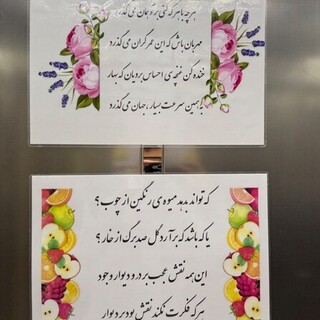 هر چه با هر که کنی بر تو همان می گذرد
مهربان باش که این عمر گران می گذرد
خنده کن غنچه ی احساس برویان که بهار
به همین سرعت بسیار، جهان می گذرد
که تواند بدهد میوه ی رنگین از چوب؟
یا که باشد که برآرد گل صد برگ از خار؟
این همه نقش عجب بر در و دیوار وجود
هر که فکرت نکند نقش بود بر دیوار